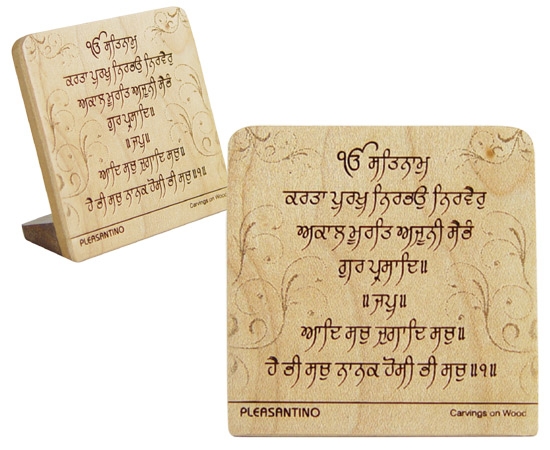 ੴ ਸਤਿਨਾਮੁ
ਕਰਤਾ ਪੁਰਖੁ ਨਿਰਭਉ ਨਿਰਵੈਰੁ
ਅਕਾਲ ਮੂਰਤਿ ਅਜੂਨੀ ਸੈਭੰ
ਗੁਰ ਪ੍ਰਸਾਦਿ॥
॥ਜਪੁ॥
ਆਦਿ ਸਚੁ ਜੁਗਾਦਿ ਸਚੁ॥
ਹੈ ਭੀ ਸਚੁ ਨਾਨਕ ਹੋਸੀ ਭੀ ਸਚੁ॥੧॥
PLEASANTINO Carvings on Wood
ੴ ਸਤਿਨਾਮੁ
ਕਰਤਾ ਪੁਰਖੁ ਨਿਰਭਉ ਨਿਰਵੈਰੁ
ਅਕਾਲ ਮੂਰਤਿ ਅਜੂਨੀ ਸੈਭੰ
ਗੁਰ ਪ੍ਰਸਾਦਿ॥
॥ਜਪੁ॥
ਆਦਿ ਸਚੁ ਜੁਗਾਦਿ ਸਚੁ॥
ਹੈ ਭੀ ਸਚੁ ਨਾਨਕ ਹੋਸੀ ਭੀ ਸਚੁ॥੧॥
PLEASANTINO Carvings on Wood